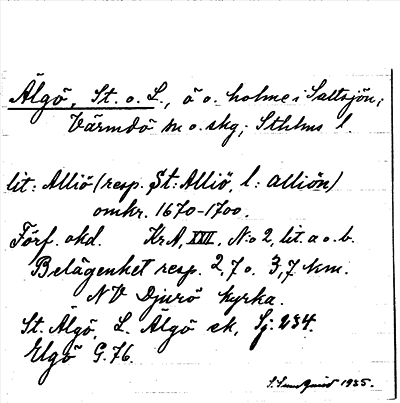 Älgö, St. o. L., ö o. holme i Saltsjön;
Värmdö sn o. skg; Sthlms l.
lit: Alliö (resp. St: Alliö, l: alliön)
omkr. 1670-1700.
Förf. okd. KrA, XXII, N:o 2, lit. a o. b.
Belägenhet resp. 2,7 o. 3,7 km.
NV Djurö kyrka.
St. Älgö, L. Älgö ek, Sj. 234.
Elgö G. 76.
S. Sundquist 1935.